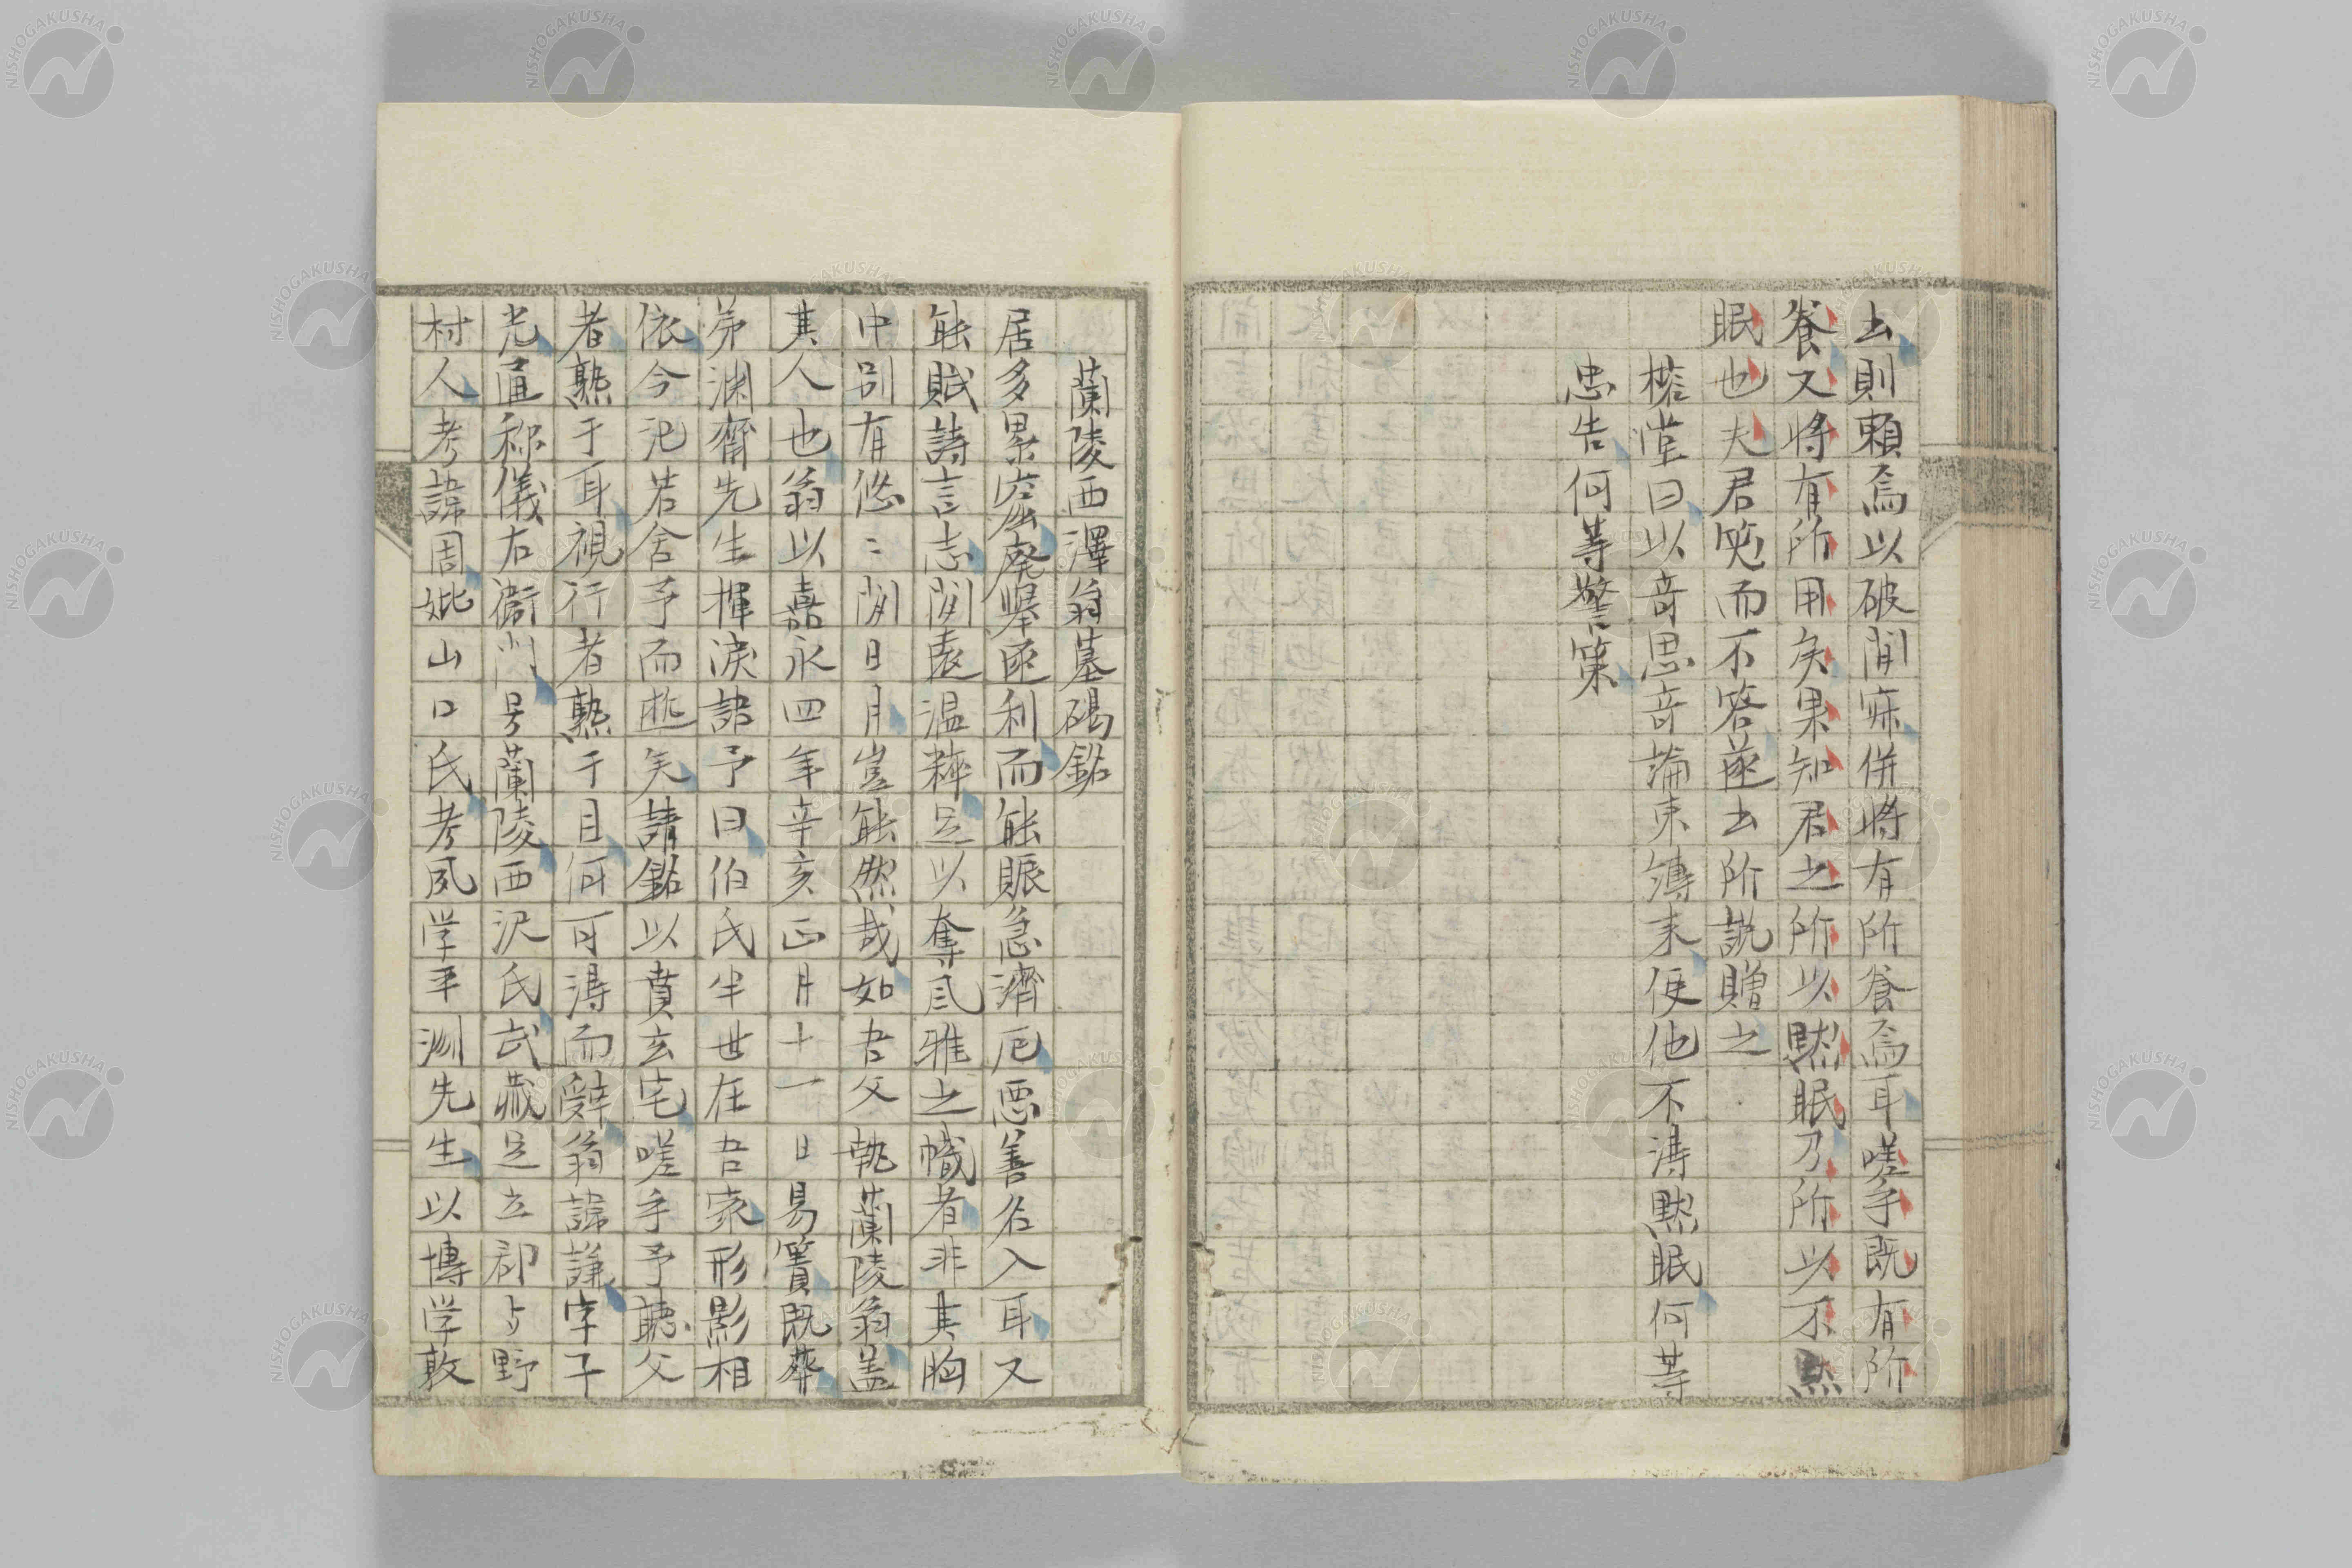 去則頼焉以破閒寐併将有所養焉耳嗟乎既有所
養又将有所用矣果知君之所以黙眠乃所以不黙
眠也夫君笑而不答遂去所説贈之
榕堂曰以奇思奇論束縛来使他不得黙眠何等
忠告何等警策
蘭陵西澤翁墓碣銘
居多累窟廃挙匝利而能賑急済厄悪善名入耳又
能賦詩言志閑遠温粋足以奪貳雅之幟者非其胸
中別有悠々閑日月豈能然哉如吾父執蘭陵翁盖
其人也翁以嘉永四年辛亥正月十一日易簀既葬
弟淵齋先生揮涙語予曰伯氏半世在吾家形影相
依今沌若舎予而逝矣請銘以賁玄宅嗟乎予聴父
者熟于耳視行者熟于目何可得而辞翁諱謙字子
光通称儀右衛門号蘭陵西沢氏武蔵足立郡与野
村人考諱周妣山口氏考夙学平洲先生以博学敦
NISHOGAKUSHA